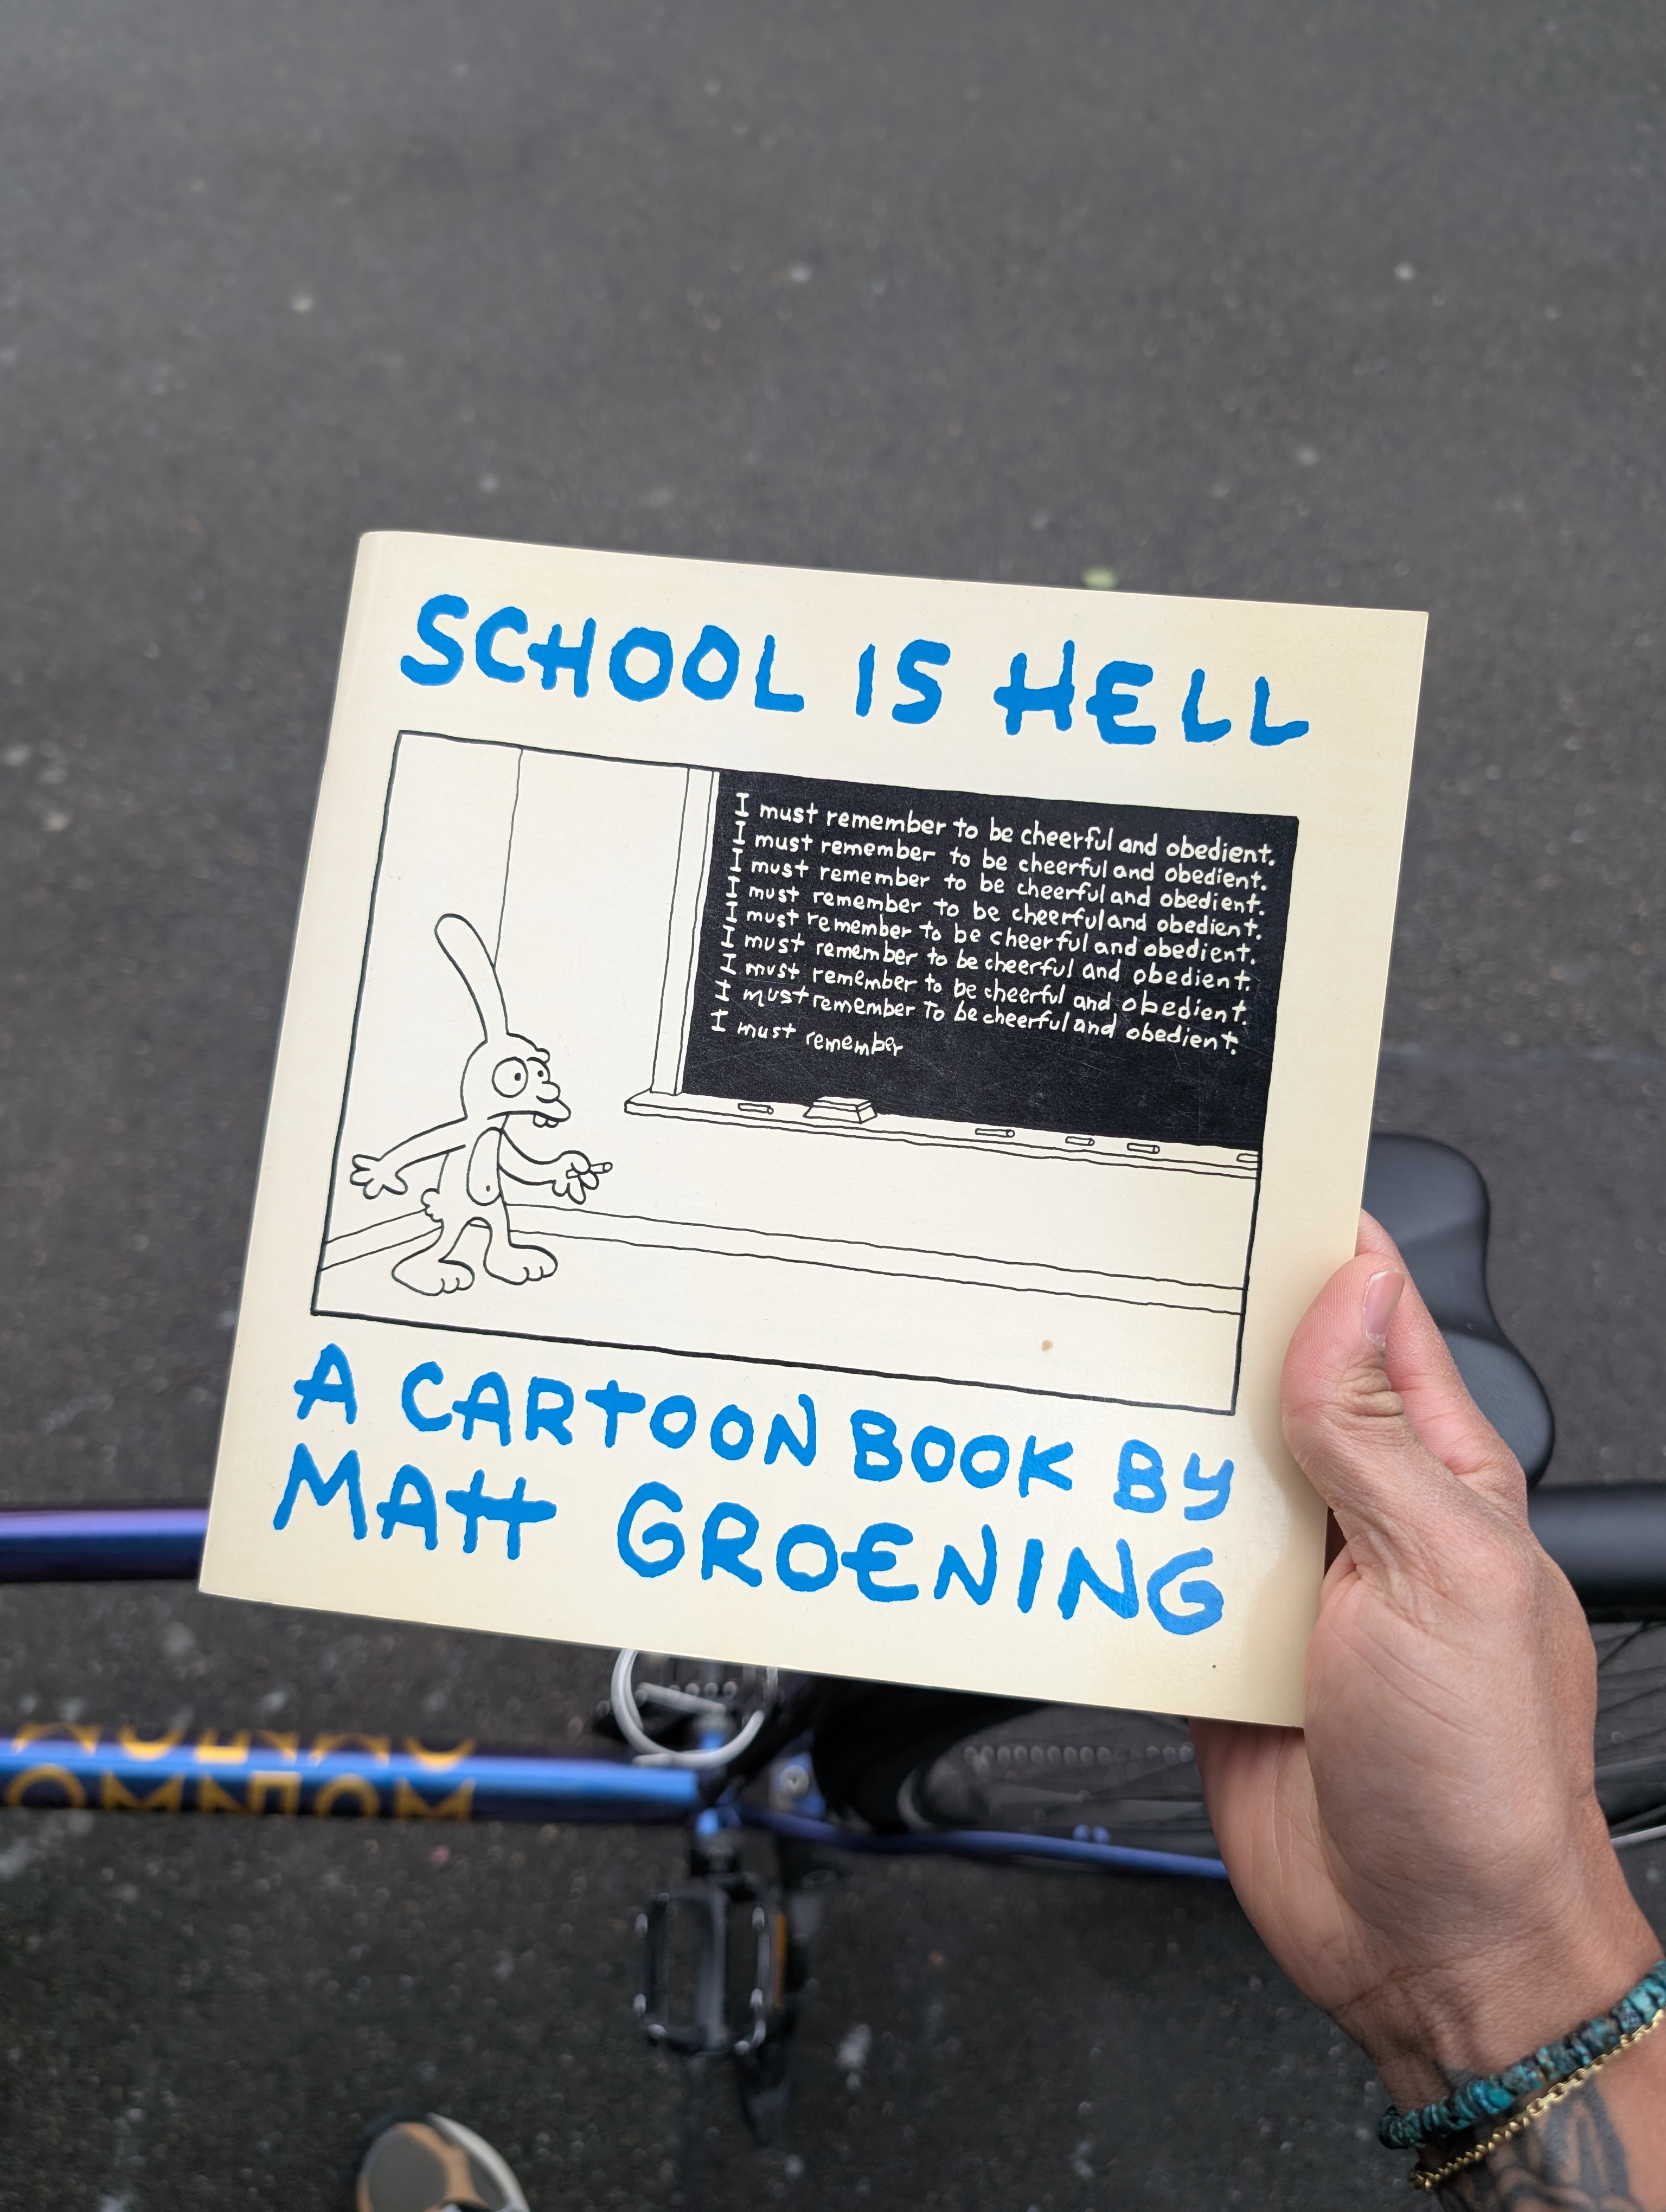 SCHOOL IS HELL
I must remember to be cheerful and obedient.
I must remember to be cheerful and obedient.
I must remember to be cheerful and obedient.
I must remember to be cheerful and obedient.
I must remember to be cheerful and obedient.
I must remember to be cheerful and obedient.
I must remember to be cheerful and obedient.
I must remember To be cheerful and obedient.
I must remember
A CARTOON BOOK BY
MATT GROENING